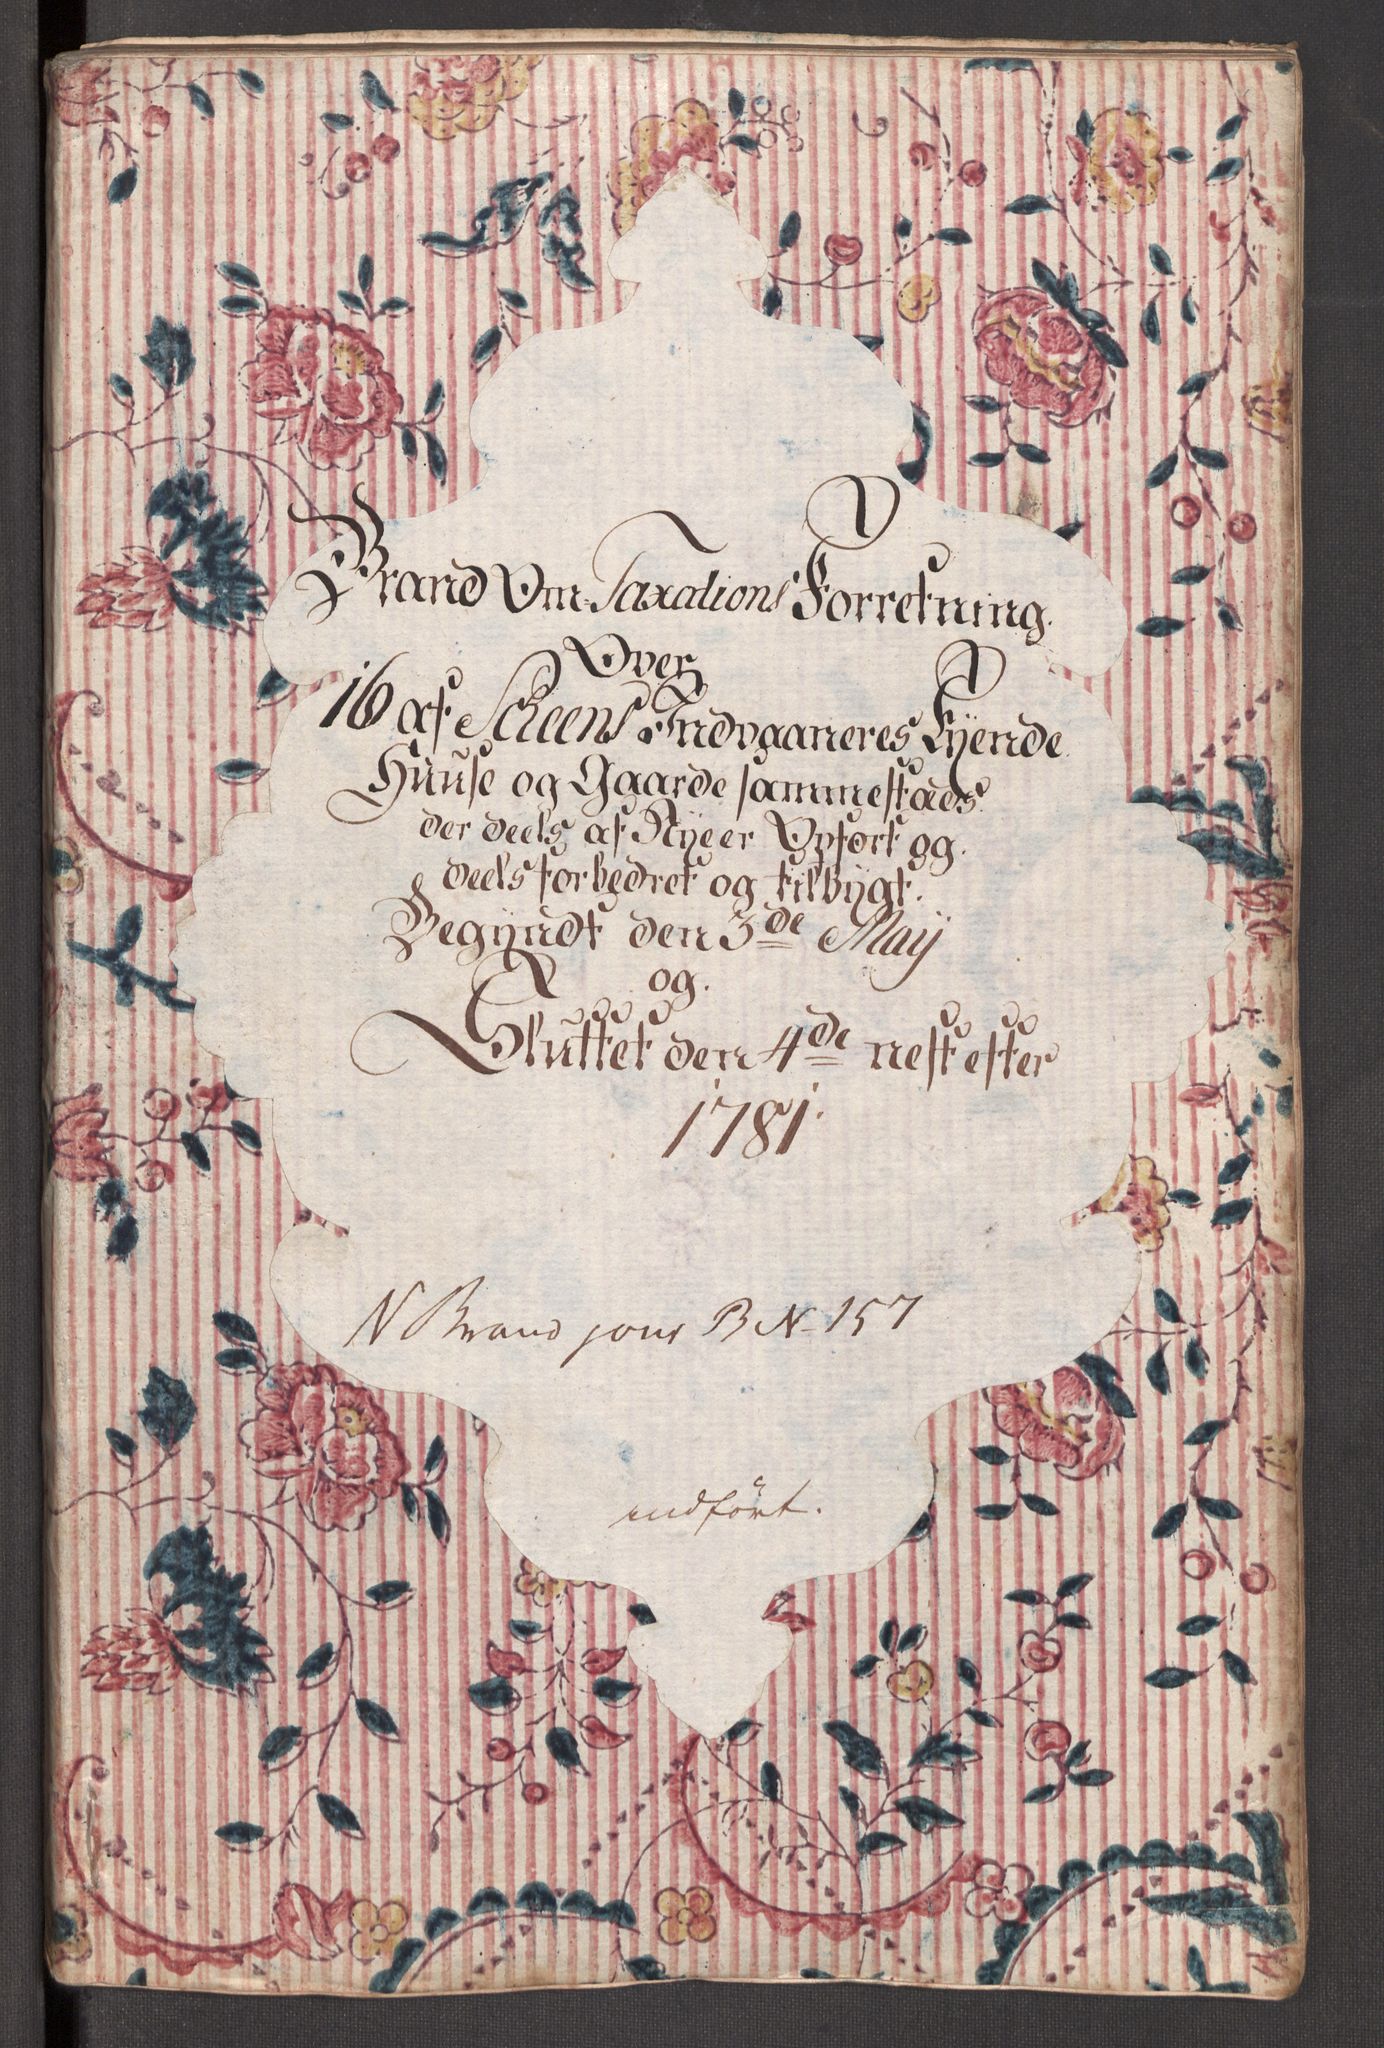 Brand Om-Taxations Forretning.
Over
16 af Scheens Indvaaneres Eÿende
Huuse og Gaarde sammestæds
der deels af Nÿeer Opført og
deels forbedret og tilbÿgt.
Begÿndt den 3de Maÿ
og.
Sluttet den 4de nest efter
1781.
N Brand jour B No 157
indført.